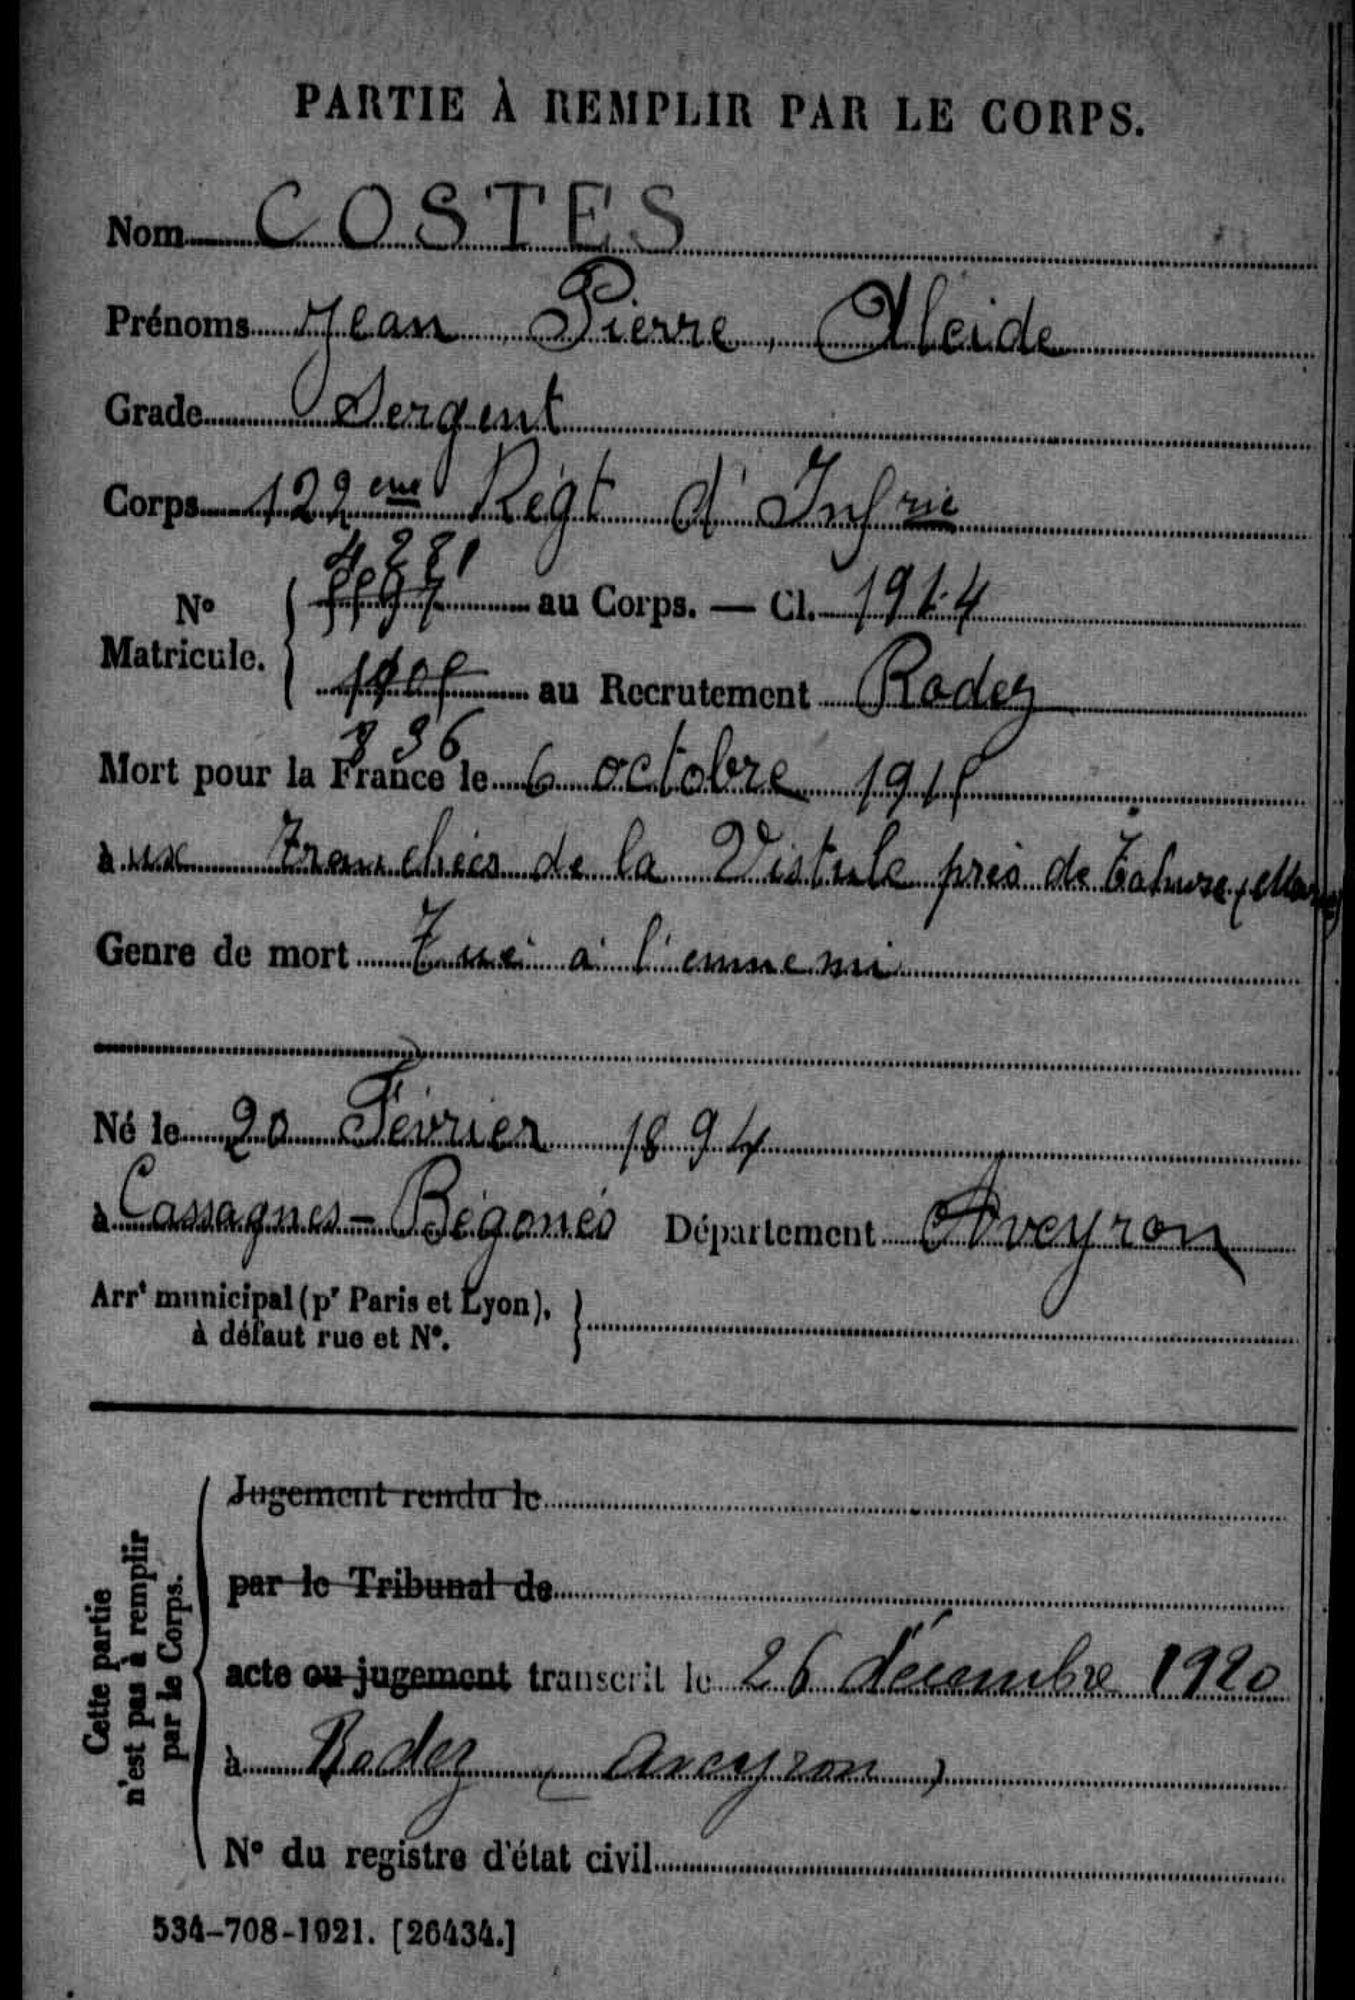 PARTIE À REMPLIR PAR LE CORPS.
Nom COSTES
Prénoms Jean, Pierre, Alcide
Grade Sergent
Corps 122eme Régt d'Infrie
4281
au Corps. — Cl. 1914
N° Matricule.
au Recrutement Rodez
896
Mort pour la France le 6 octobre 1915
aux Tranchées de la Vistule près de Tahure (Marne)
Genre de mort Tué à l'ennemi
Né le 20 Février 1894
à Cassagnes-Bégonès Département Aveyron
Arrt municipal (pr Paris et Lyon), à défaut rue et N°.
Cette partie n'est pas à remplir par le Corps.
Jugement rendu le
par le Tribunal de
acte ou jugement transcrit le 26 décembre 1920
à Rodez (Aveyron)
N° du registre d'état civil
534-708-1921. [26434.]